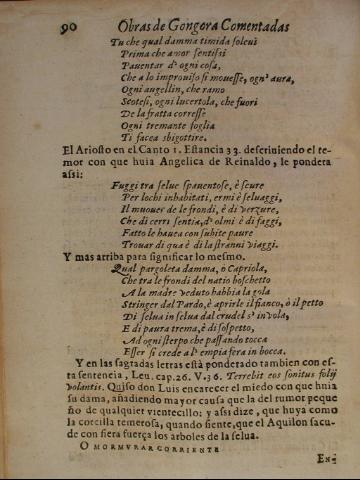 90 Obras de Gongora Comentadas
Tu che qual damma timida soleui
Prima che amor sentissi
Pauentar d' ogni cosa,
Che a lo improuiso si mouesse, ogn' aura,
Ogni augellin, che ramo
Scotesi, ogni lucertola, che fuori
De la fratta corresse
Ogni tremante foglia
Ti facea sbigottire.
El Ariosto en el Canto 1. Estancia 33. descriuiendo el te-
mor con que huia Angelica de Reinaldo, le pondera
assi:
Fuggi tra selue spauentose, è scure
Per lochi inhabitati, ermi è seluaggi,
Il muouer de le frondi, è di verzure,
Che di cerri sentia, d' olmi è di faggi,
Fatto le hauea con subite paure
Trouar di qua è di la stranni viaggi.
Y mas arriba para significar lo mesmo.
Qual pargoleta damma, o Capriola,
Che tra le frondi del natio boschetto
A la madre veduto habbia la gola
Stringer dal Pardo, è aprirle il fianco, ò il petto
Di selua in selua dal crudel s' inuola,
E di paura trema, è di sospetto,
Ad ogni sterpo che passando tocca
Esser si crede a l' empia fera in bocca.
Y en las sagradas letras està ponderado tambien con es-
ta sentencia, Leu. cap. 26. V. 36. Terrebit eos sonitus folij
volantis. Quiso don Luis encarecer el miedo con que huia
su dama, añadiendo mayor causa que la del rumor peque
ño de qualquier vientecillo; y assi dize, que huya como
la corcilla temerosa, quando siente, que el Aquilon sacu-
de con fiera fuerça los arboles de la selua.
O MORMVRAR CORRIENTE